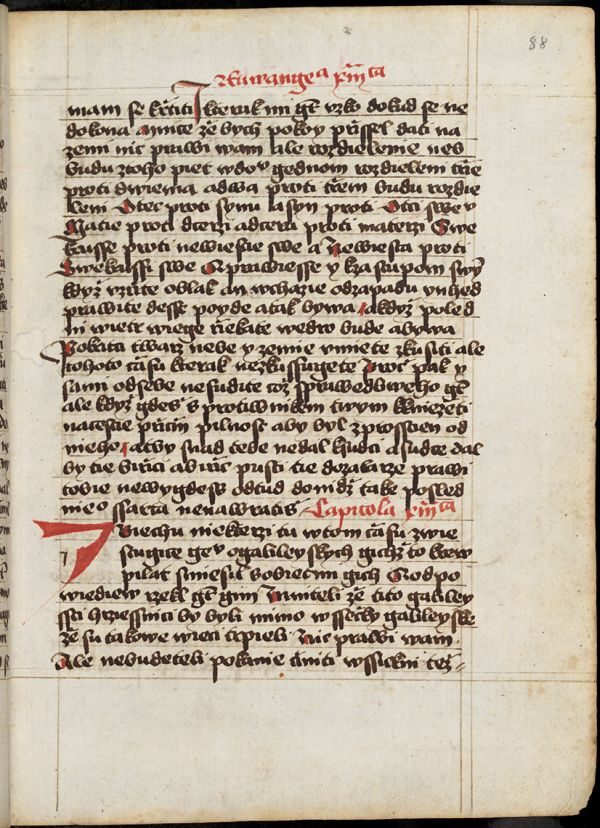 88
mam se krztiti kterak mi gt vzko dokud se ne
dokona mnite ze bych pokoy przssel dati na
zemi nic prawi wam ale rozdielenie neb
budu ztoho piet wdou gednom rozdieleni trzie
proti dwiema a dwa proti trzem budu rozdie
leni Otec proti synu a syn proti Otci swe v
Matie proti dcerzi a dcera proti materzi Swe
krusse proti newiestie swe a Newiesta proti
Swekrussi swe Y prawiesse y k zastupom swym
kdyz vzrzite oblak an wchazie od zapadu ynhed
prawite dessc poyde a tak bywa a kdyz poled
ni wietr wiege rziekate wedro bude a bywa
Pokritci twarz nebe y zemie vmiete zkusiti ale
tohoto czasu kterak nezkussugete Proc pak y
sami od sebe nesudite toz sprawedliweho gt
ale kdyz gdes s protiwnikem twym k kniezeti
na cestie przicin pilnost aby byl zprosstien od
nieho at by snad tebe nedal k sudci a sudce dal
by tie birzici a birzic pusti tie do zalarze prawi
tobie newygdess odtud doniz take posled
nieo ssarta nenawratis Capitola
Biechu niekterzi tu w tom czasu zwie
stugice gev o galileyskych gichz to krew
pilat smiesil s obietmi gich Y odpo
wiediew rzekl gt gim Mniteli ze tito galiley
ssti hrziessnici by byli mimo wssecky galileyske
ze su takowe wieci trpieli Nic prawi wam
Ale nebudeteli pokanie cziniti wssickni tez